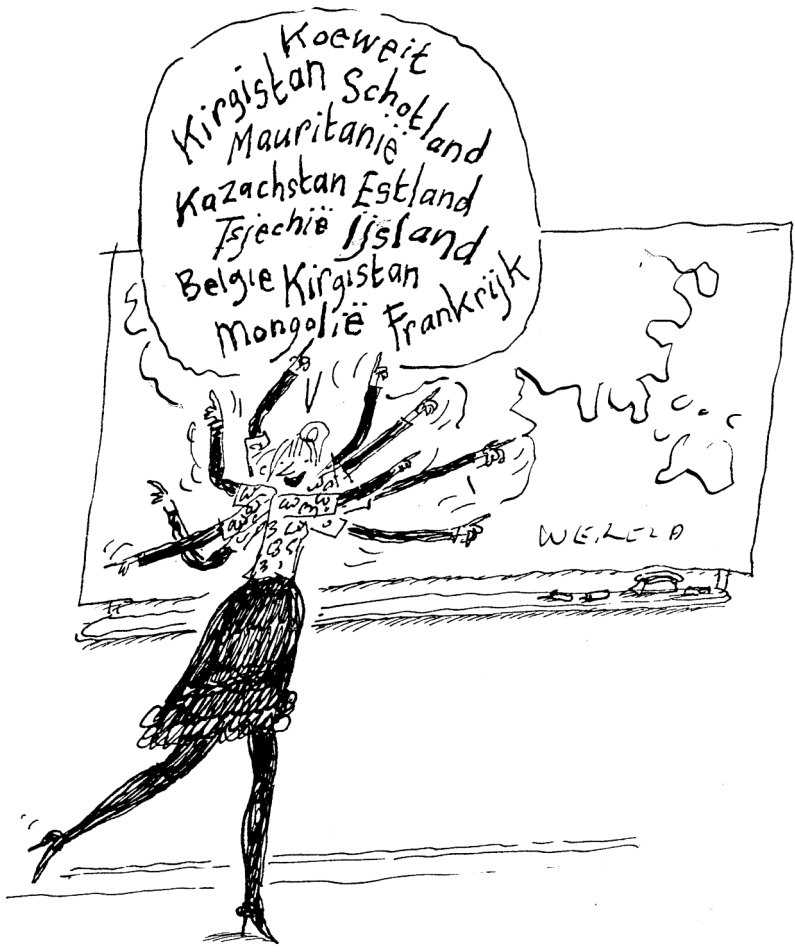 Koeweit
Kirgistan Schotland
Mauritanië
Kazachstan Estland
Tsjechië Ijsland
Belgie Kirgistan
Mongolië Frankrijk